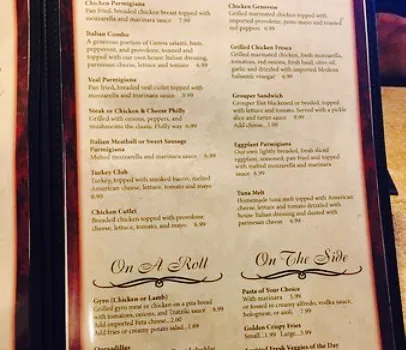 Chicken Parmigiana
Pan fried, breaded chicken breast topped with
mozzarella and marinara sauce 7.99
Italian Combo
A generous portion of Genoa salami, ham,
pepperoni, and provolone, toasted and
topped with our own house Italian dressing,
parmesan cheese, lettuce and tomato 6.99
Veal Parmigiana
Pan fried, breaded veal cutlet topped with
mozzarella and marinara sauce 8.99
Steak or Chicken & Cheese Philly
Grilled with onions, peppers, and
mushrooms the classic Philly way 6.99
Italian Meatball or Sweet Sausage
Parmigiana
Melted mozzarella and marinara sauce 6.99
Turkey Club
Turkey, topped with smoked bacon, melted
American cheese, lettuce, tomato and mayo
6.99
Chicken Cutlet
Breaded chicken topped with provolone
cheese, lettuce, tomato, and mayo 6.99
On A Roll
Gyro (Chicken or Lamb)
Grilled gyro meat or chicken on a pita bread
with tomatoes, onions, and Tzatziki sauce 6.99
Add imported Feta cheese..2.00
Add fries or creamy potato salad..1.89
Quesadillas
Chicken Genovese
Grilled marinated chicken topped with
imported provolone, pesto mayo and roasted
red peppers 6.99
Grilled Chicken Fresca
Grilled marinated chicken, fresh mozzarella,
tomatoes, red onions, fresh basil, olive oil,
garlic and drizzled with imported Modena
balsamic vinegar 6.99
Grouper Sandwich
Grouper filet blackened or broiled, topped
with lettuce and tomato. Served with a pickle
slice and tartar sauce 9.99
Add cheese...1.00
Eggplant Parmigiana
Our own lightly breaded, fresh sliced
eggplant, seasoned, pan fried and topped
with melted mozzarella and marinara
sauce 6.99
Tuna Melt
Homemade tuna melt topped with American
cheese, lettuce and tomato drizzled with
house Italian dressing and dusted with
parmesan cheese 6.99
On The Side
Pasta of Your Choice
With marinara 5.99
or tossed in creamy alfredo, vodka sauce,
bolognese, or aioli 7.99
Golden Crispy Fries
Small...1.99 Large...3.99
Fresh Veggies of the Day